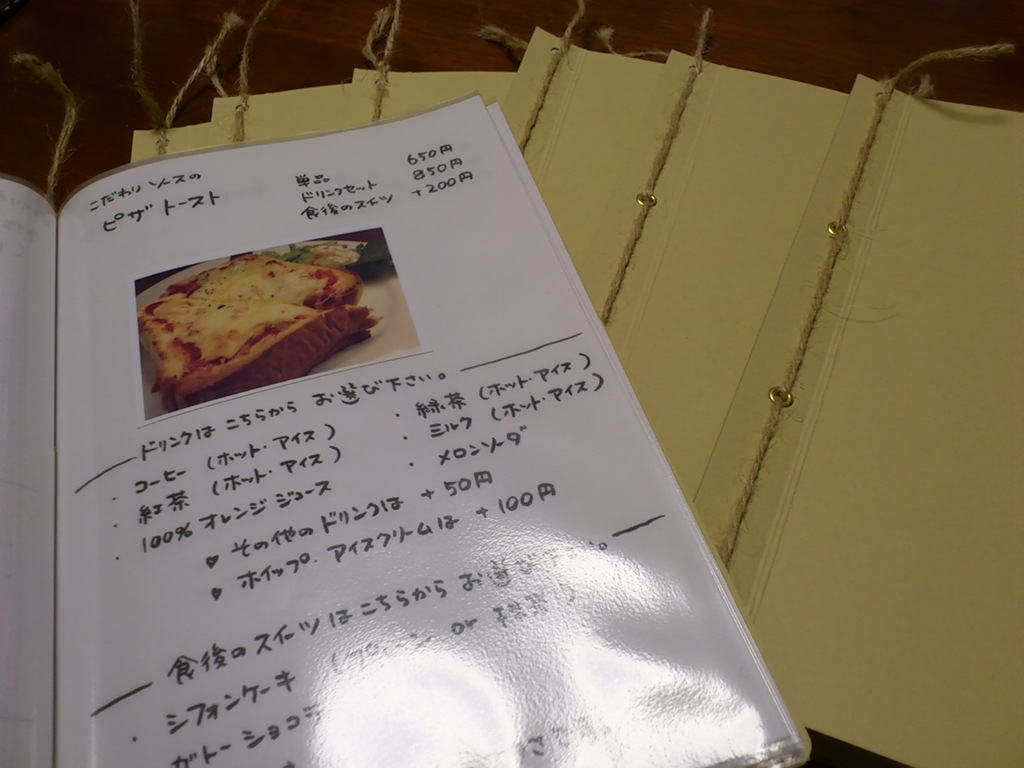 こだわりソースの
ピザトースト
単品 650円
ドリンクセット 850円
食後のスイーツ +200円
ドリンクは こちらから お選び下さい。
・コーヒー (ホット・アイス)
・紅茶 (ホット・アイス)
・100% オレンジジュース
・緑茶 (ホット・アイス)
・ミルク (ホット・アイス)
・メロンソーダ
♥ その他のドリンクは +50円
♥ ホイップ・アイスクリームは +100円
食後のスイーツはこちらから お選び
・シフォンケーキ ( or
ガトーショコラ